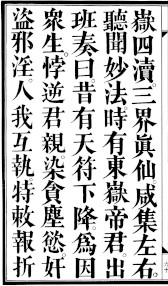 嶽四瀆。三界眞仙咸集左右。
聽聞妙法時有東嶽帝君。出
班奏曰昔有天符下降。爲因
衆生。悖逆君親。染貪塵慾。奸
盜邪淫。人我互執特敕報折